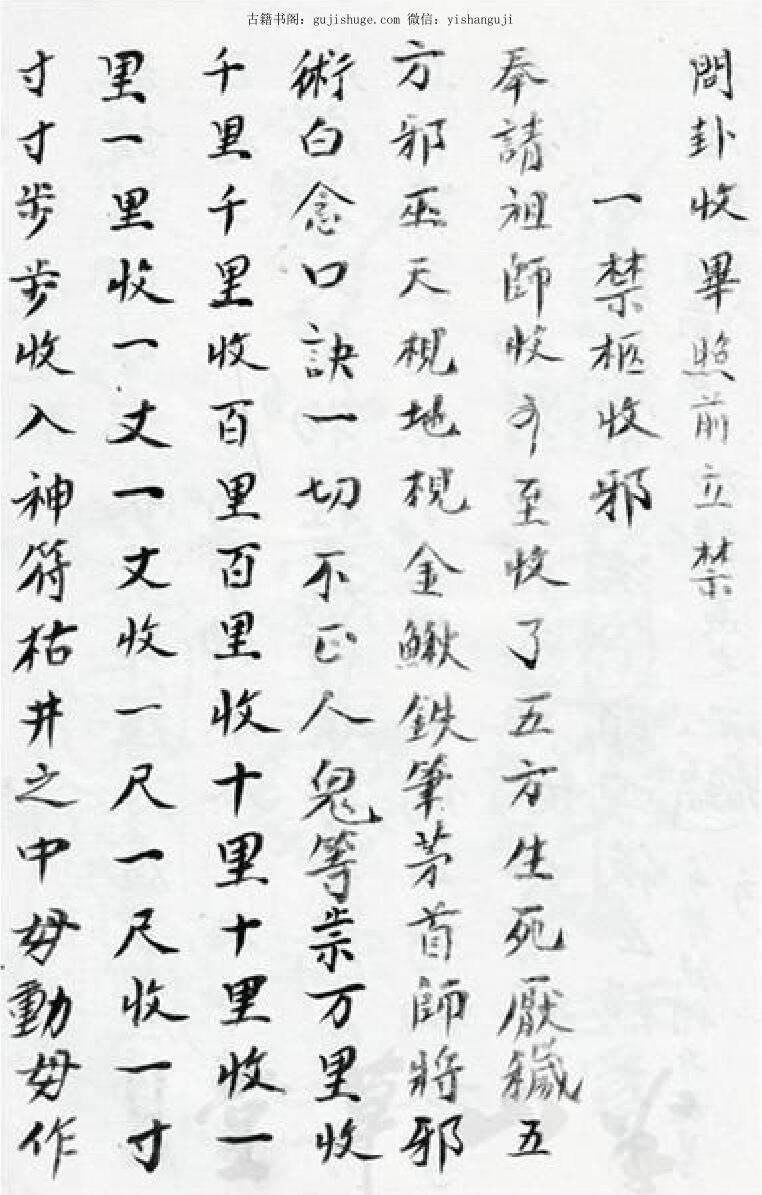 古籍书阁：gujishuge.com 微信：yishanguji
問卦收畢照前立禁
一禁柩收邪
奉請祖師收至收了五方生死厭穢五
方邪巫天梘地梘金鍬鉄筆茅首師將邪
術白念口訣一切不正人鬼等祟万里收
千里千里收百里百里收十里十里收一
里一里收一丈一丈收一尺一尺收一寸
寸寸步步收入神符枯井之中毋動毋作